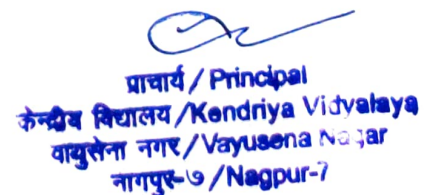 प्राचार्य / Principal
केन्द्रीय विद्यालय / Kendriya Vidyalaya
वायुसेना नगर / Vayusena Nagar
नागपुर-७ / Nagpur-7